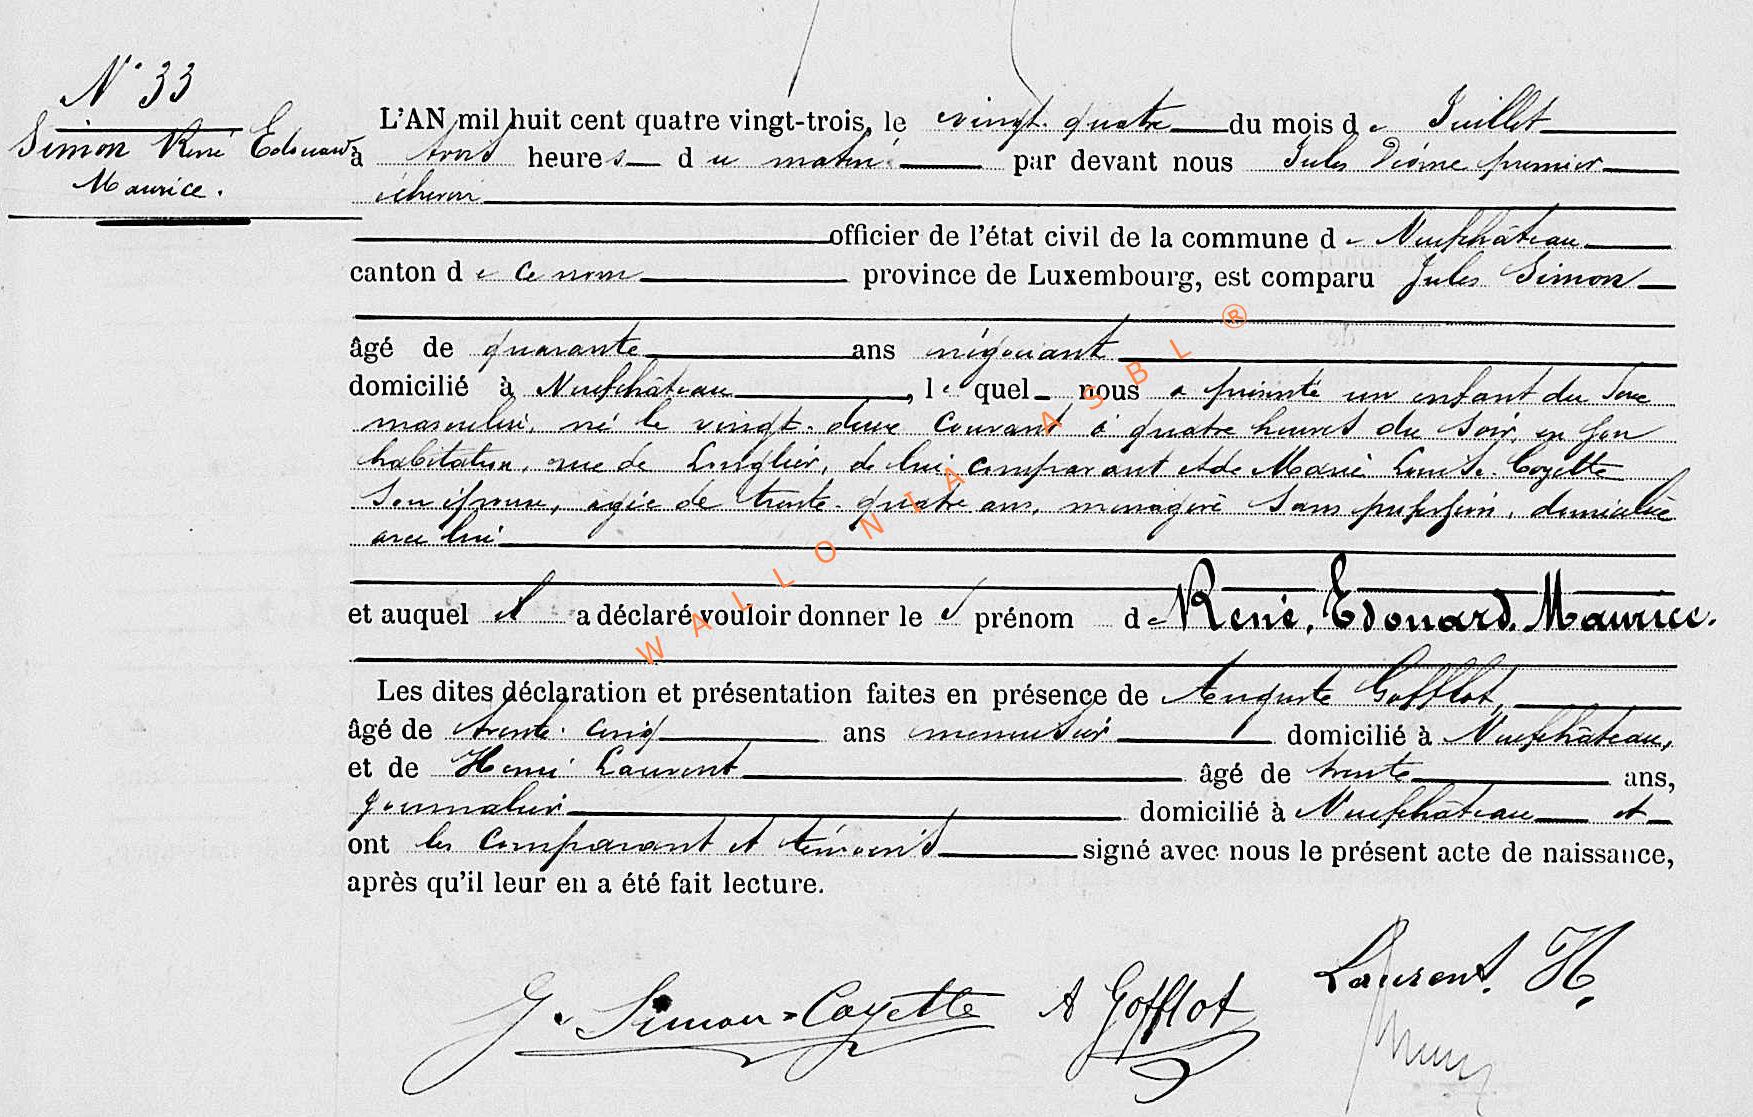 N° 33
Simon René Edouard
Maurice.
L'AN mil huit cent quatre vingt-trois, le vingt-quatre du mois de Juillet
à trois heures du matin par devant nous Jules premier
échevin
officier de l'état civil de la commune de Neufchâteau
canton de ce nom province de Luxembourg, est comparu Jules Simon
âgé de quarante ans négociant
domicilié à Neufchâteau, lequel nous a présenté un enfant du sexe
masculin, né le vingt-deux courant à quatre heures du soir, en son
habitation, rue de Longlier, de lui comparant et de Marie Louise Coyette
son épouse, agée de trente-quatre ans, menagère sans profession, domiciliée
avec lui
et auquel il a déclaré vouloir donner les prénoms de René, Edouard, Maurice.
Les dites déclaration et présentation faites en présence de Auguste Gofflot,
âgé de trente-cinq ans menuisier domicilié à Neufchâteau,
et de Henri Laurent âgé de trente ans,
journalier domicilié à Neufchâteau et
ont les comparant et témoins signé avec nous le présent acte de naissance,
après qu'il leur en a été fait lecture.
J. Simon-Coyette A Gofflot Laurent. H.
WALLONIA ASBL ®